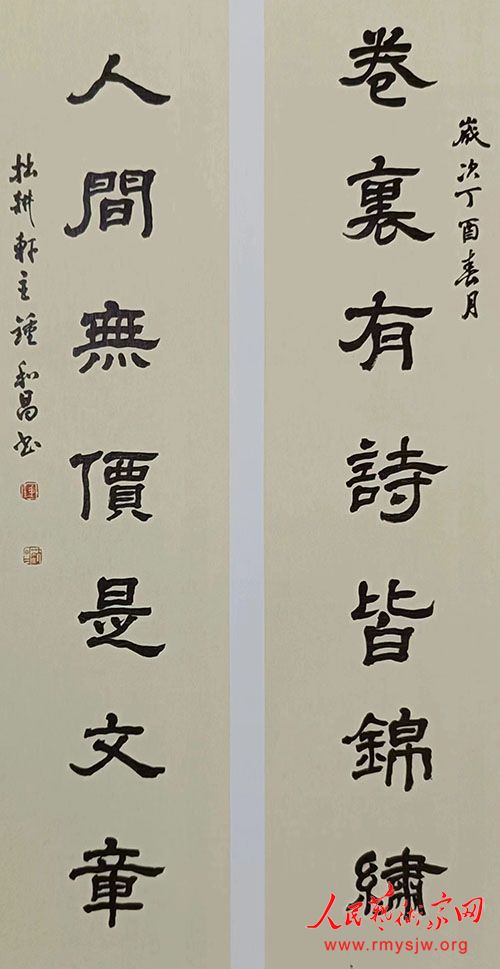 歲次丁酉春月
卷裏有詩皆錦繡
人間無價是文章
拙耕軒主鍾和昌書
人民艺术家网
www.rmysjw.org